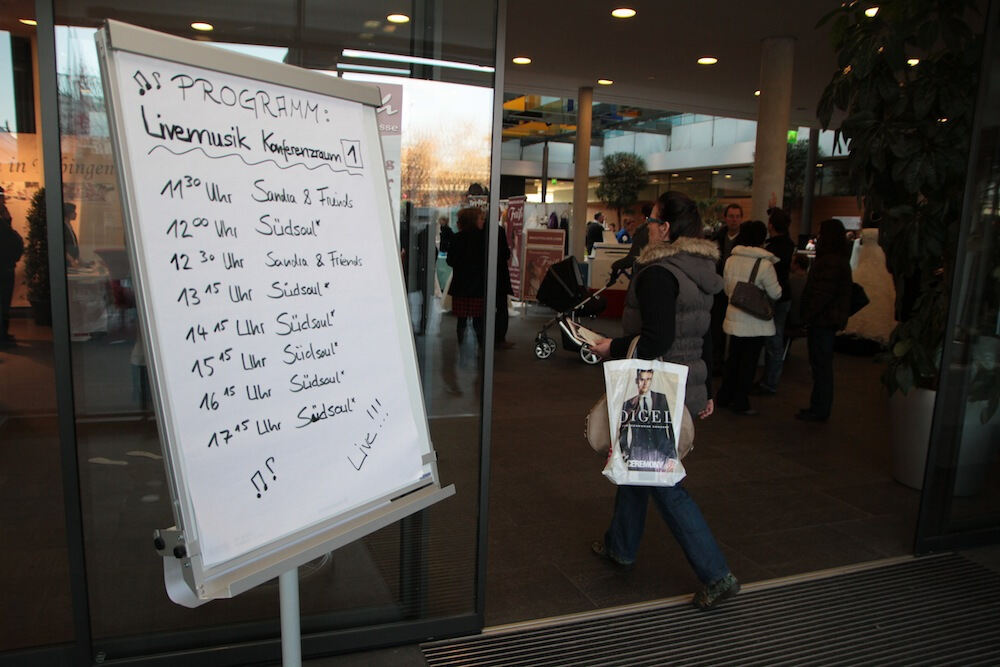 PROGRAMM:
Livemusik Konferenzraum 1
11 30 Uhr Sandra & Friends
12 00 Uhr Südsoul*
12 30 Uhr Sandra & Friends
13 15 Uhr Südsoul*
14 15 Uhr Südsoul*
15 15 Uhr Südsoul*
16 15 Uhr Südsoul*
17 15 Uhr Südsoul*
Live!!!
DIGEL
CEREMONY